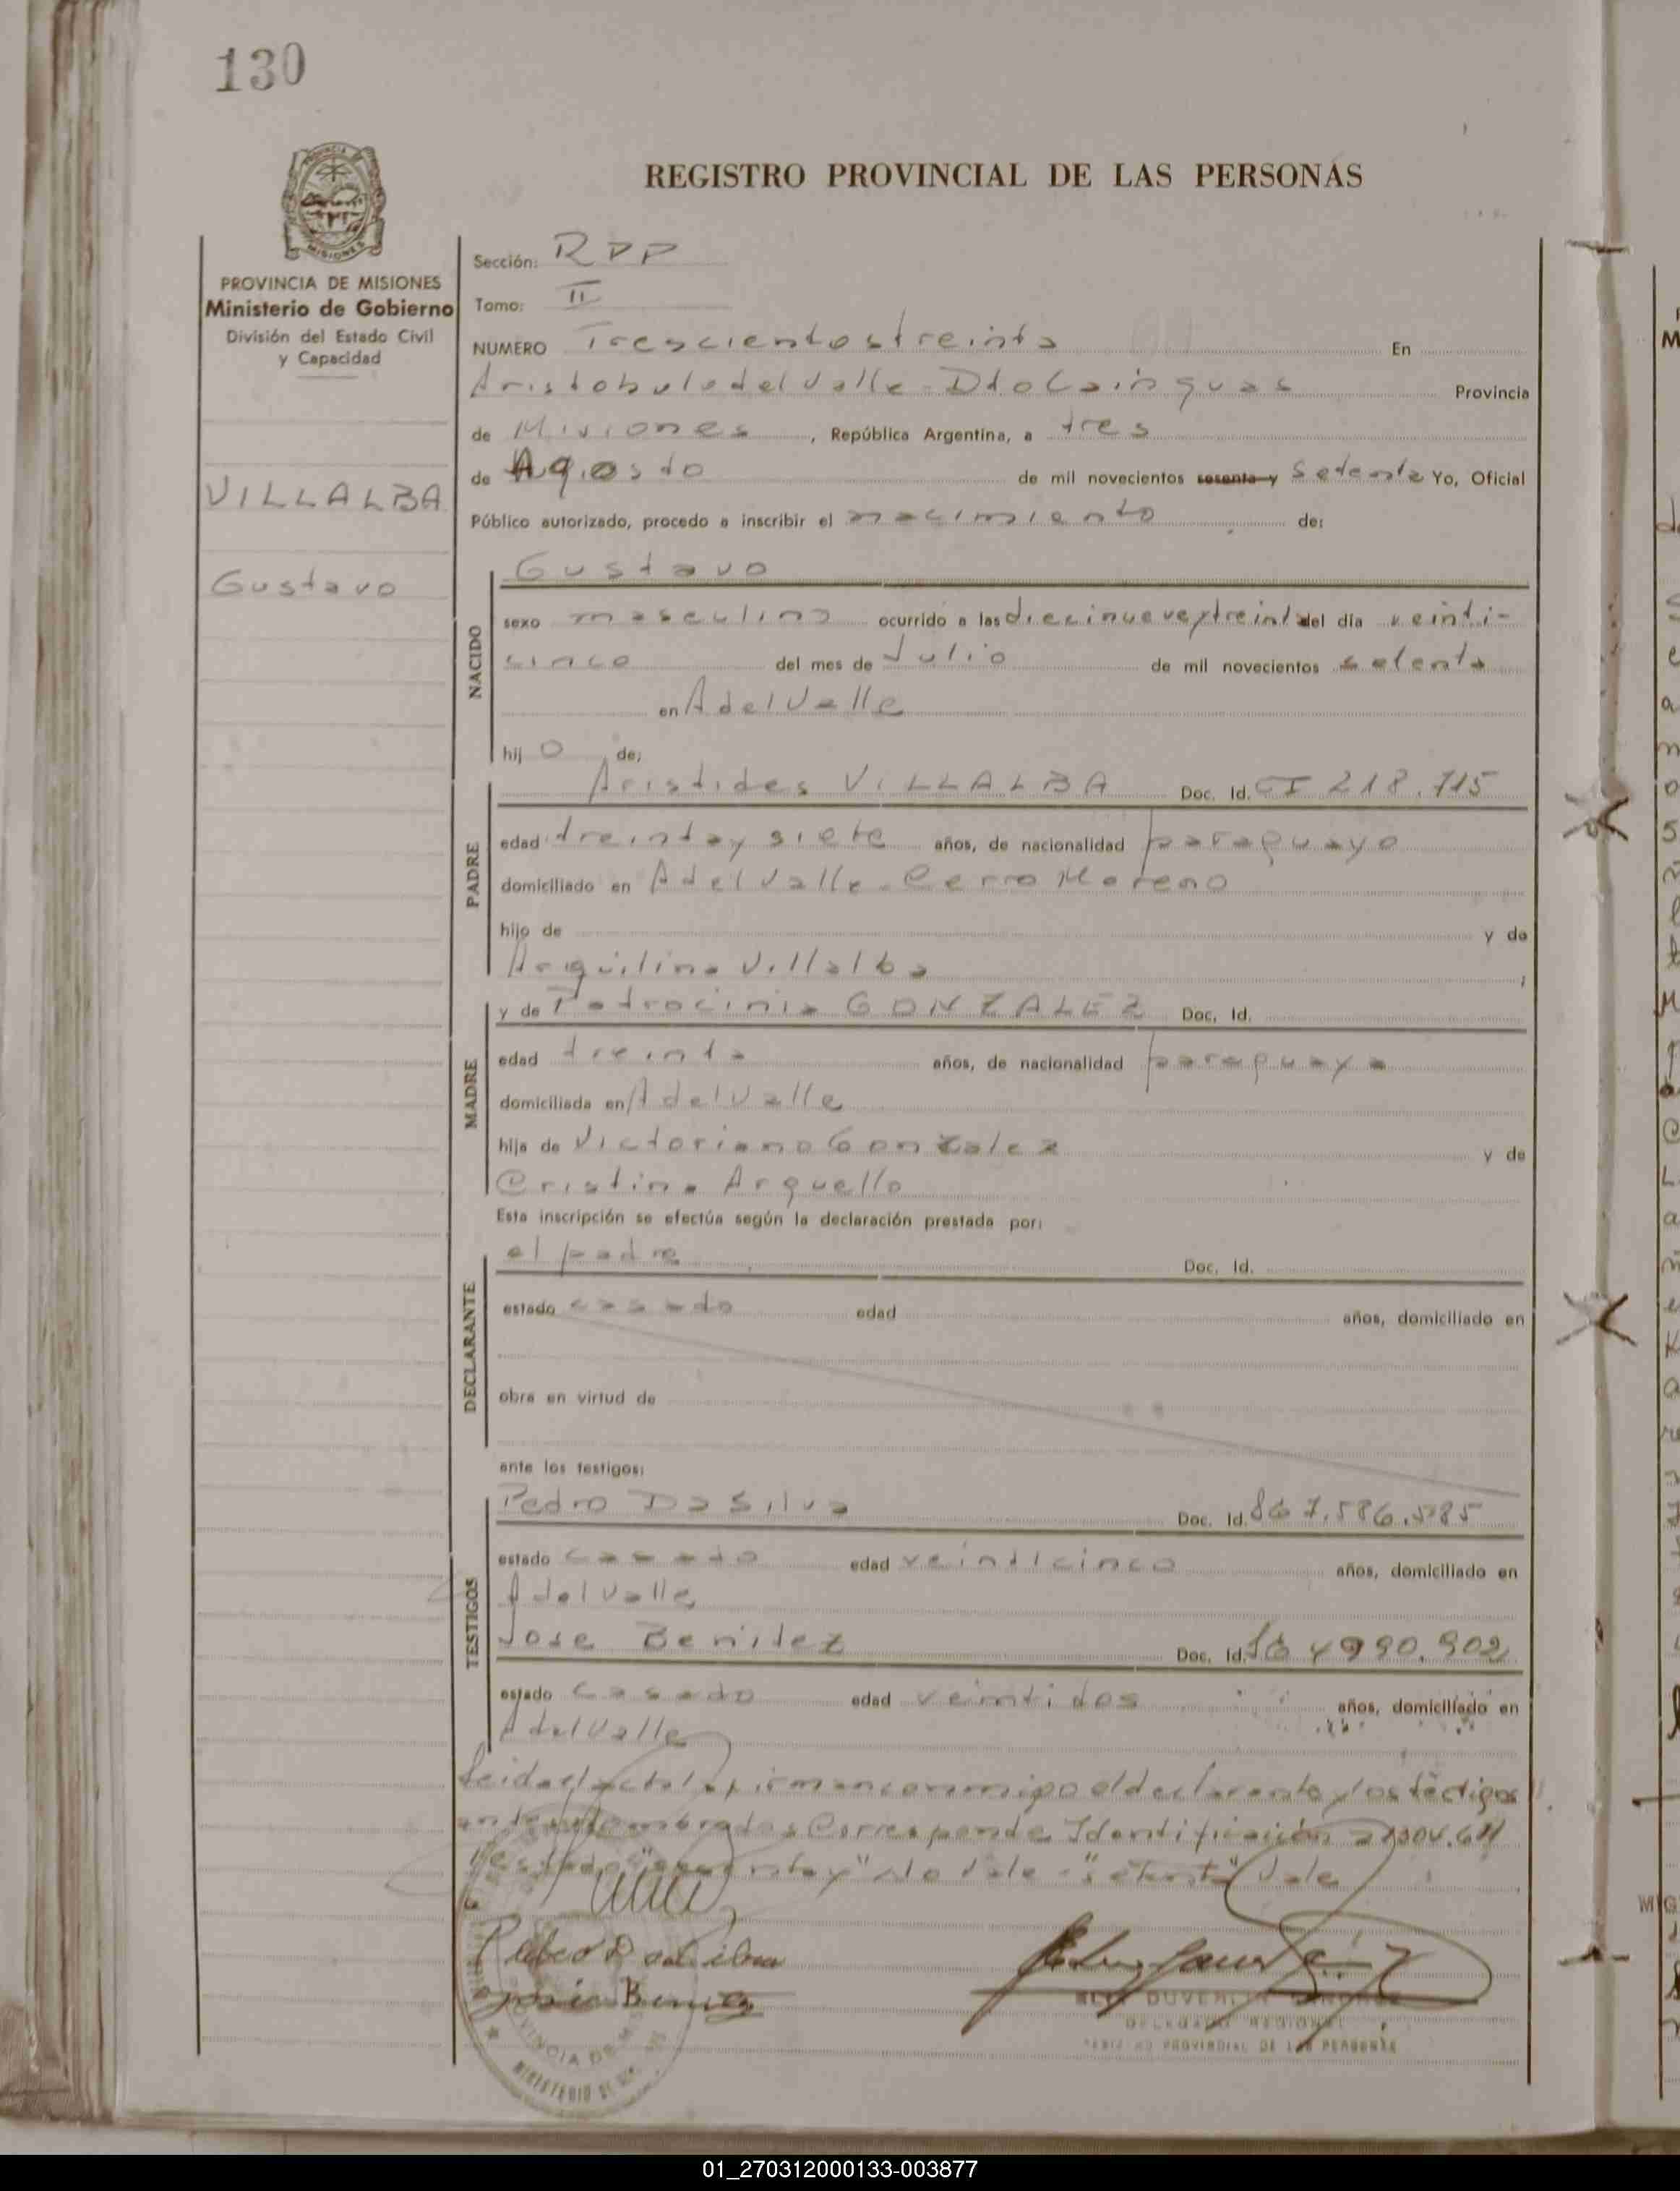 130
REGISTRO PROVINCIAL DE LAS PERSONAS
PROVINCIA DE MISIONES
Ministerio de Gobierno
División del Estado Civil
y Capacidad
VILLALBA
Gustavo
Sección: RPP
Tomo: II
NUMERO Trescientos treinta En
Aristobulo del Valle - Dto Cainguas Provincia
de Misiones, República Argentina, a tres
de Agosto de mil novecientos sesenta y Setenta Yo, Oficial
Público autorizado, procedo a inscribir el nacimiento de:
NACIDO
Gustavo
sexo masculino ocurrido a las diecinueve y treinta del día veinti-
cinco del mes de Julio de mil novecientos setenta
en A del Valle
hijo de;
PADRE
Aristides VILLALBA Doc. Id. CI 218.715
edad treinta y siete años, de nacionalidad paraguayo
domiciliado en A del Valle - Cerro Moreno
hijo de y de
Arquilina Villalba;
MADRE
y de Patrocinia GONZALEZ Doc. Id.
edad treinta años, de nacionalidad paraguaya
domiciliada en A del Valle
hija de Victoriano Gonzalez y de
Cristina Arguello
Esta inscripción se efectúa según la declaración prestada por:
DECLARANTE
el padre Doc. Id.
estado casado edad años, domiciliado en
obra en virtud de
ante los testigos:
TESTIGOS
Pedro Da Silva Doc. Id. 7.586.585
estado casado edad veinticinco años, domiciliado en
A del Valle
Jose Benitez Doc. Id. 4990.902
estado casado edad veintidos años, domiciliado en
A del Valle
Leida el acta la firman conmigo el declarante y los testigos
antes nombrados Corresponde Identificación 21304.611
Testado "sesenta y" No Vale - "setenta" Vale
José Benitez
DUVERLIN SANCHEZ
DELEGADO REGIONAL
PROVINCIAL DE LAS PERSONAS
PROVINCIA DE MISIONES
MINISTERIO DE
01_270312000133-003877